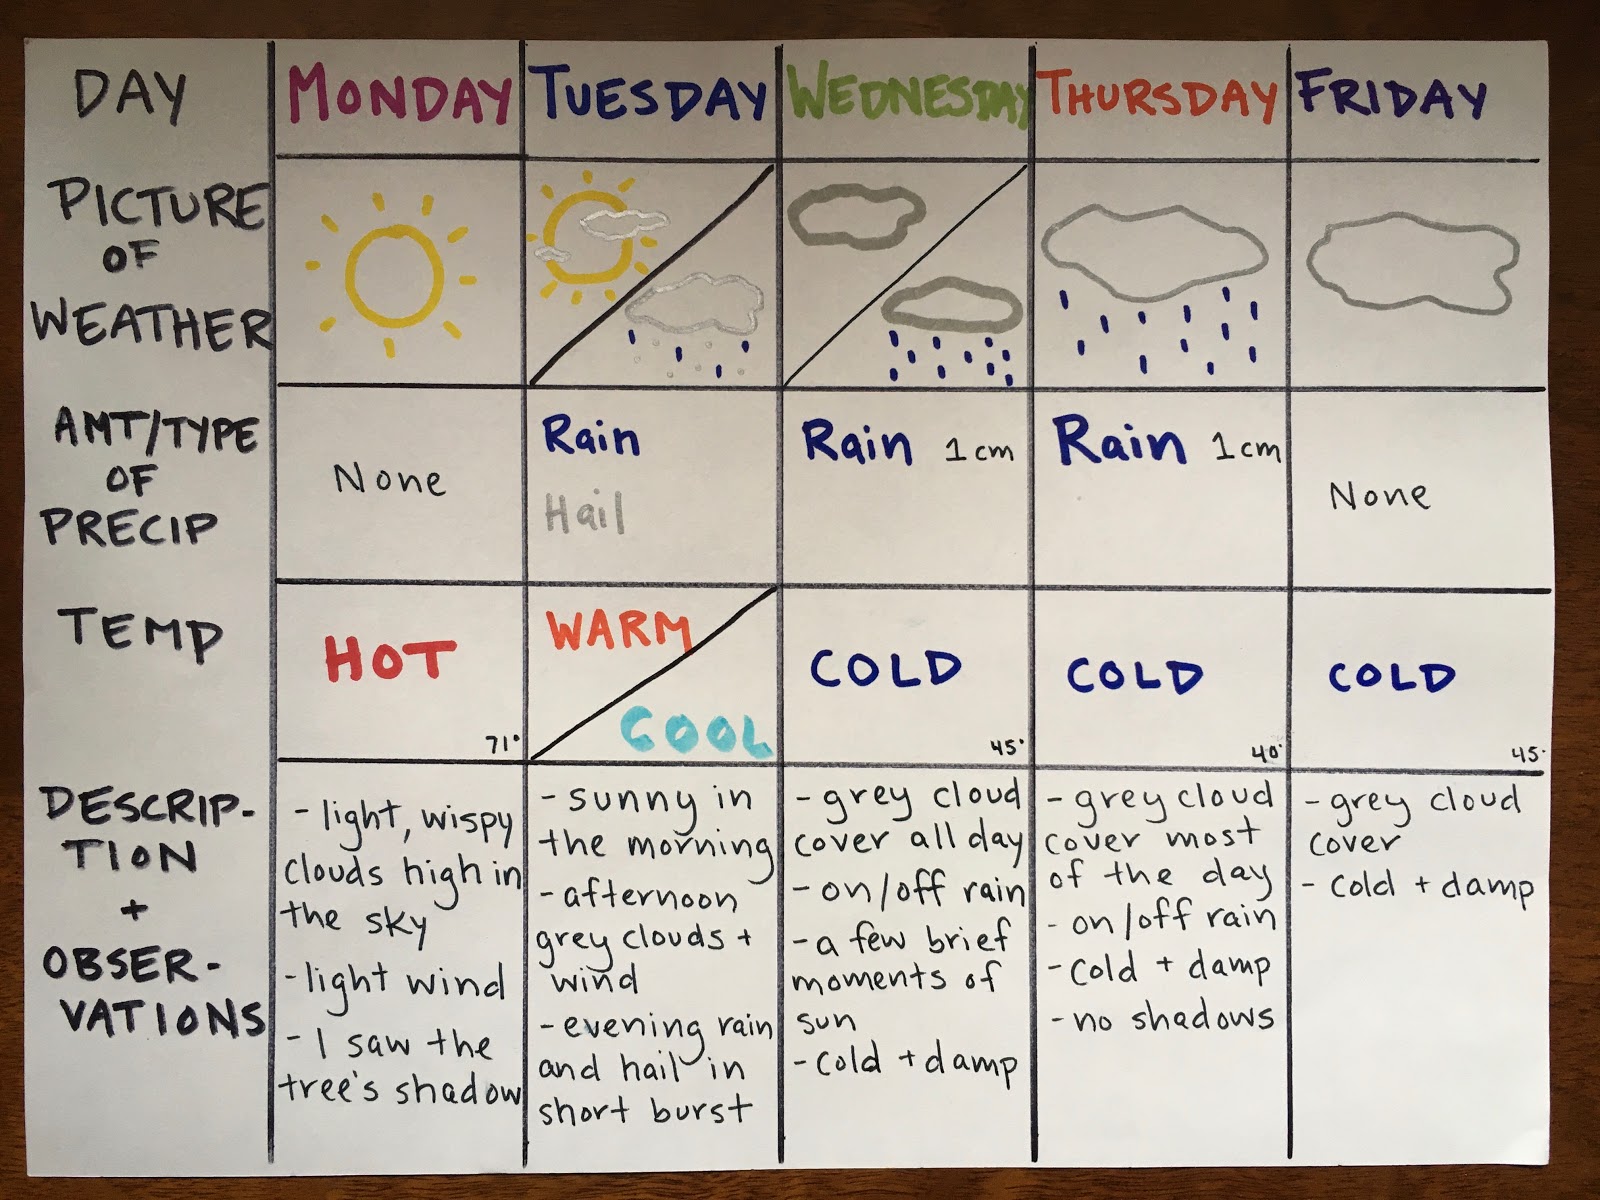 DAY
MONDAY
TUESDAY
WEDNESDAY
THURSDAY
FRIDAY
PICTURE
OF
WEATHER
AMT/TYPE
OF
PRECIP
None
Rain
Hail
Rain 1cm
Rain 1cm
None
TEMP
HOT
71°
WARM
COOL
COLD
45°
COLD
40°
COLD
45°
DESCRIP-
TION
+
OBSER-
VATIONS
- light, wispy
clouds high in
the sky
- light wind
- I saw the
tree's shadow
- sunny in
the morning
- afternoon
grey clouds +
wind
- evening rain
and hail in
short burst
- grey cloud
cover all day
- on/off rain
- a few brief
moments of
sun
- cold + damp
- grey cloud
cover most
of the day
- on/off rain
- cold + damp
- no shadows
- grey cloud
cover
- cold + damp